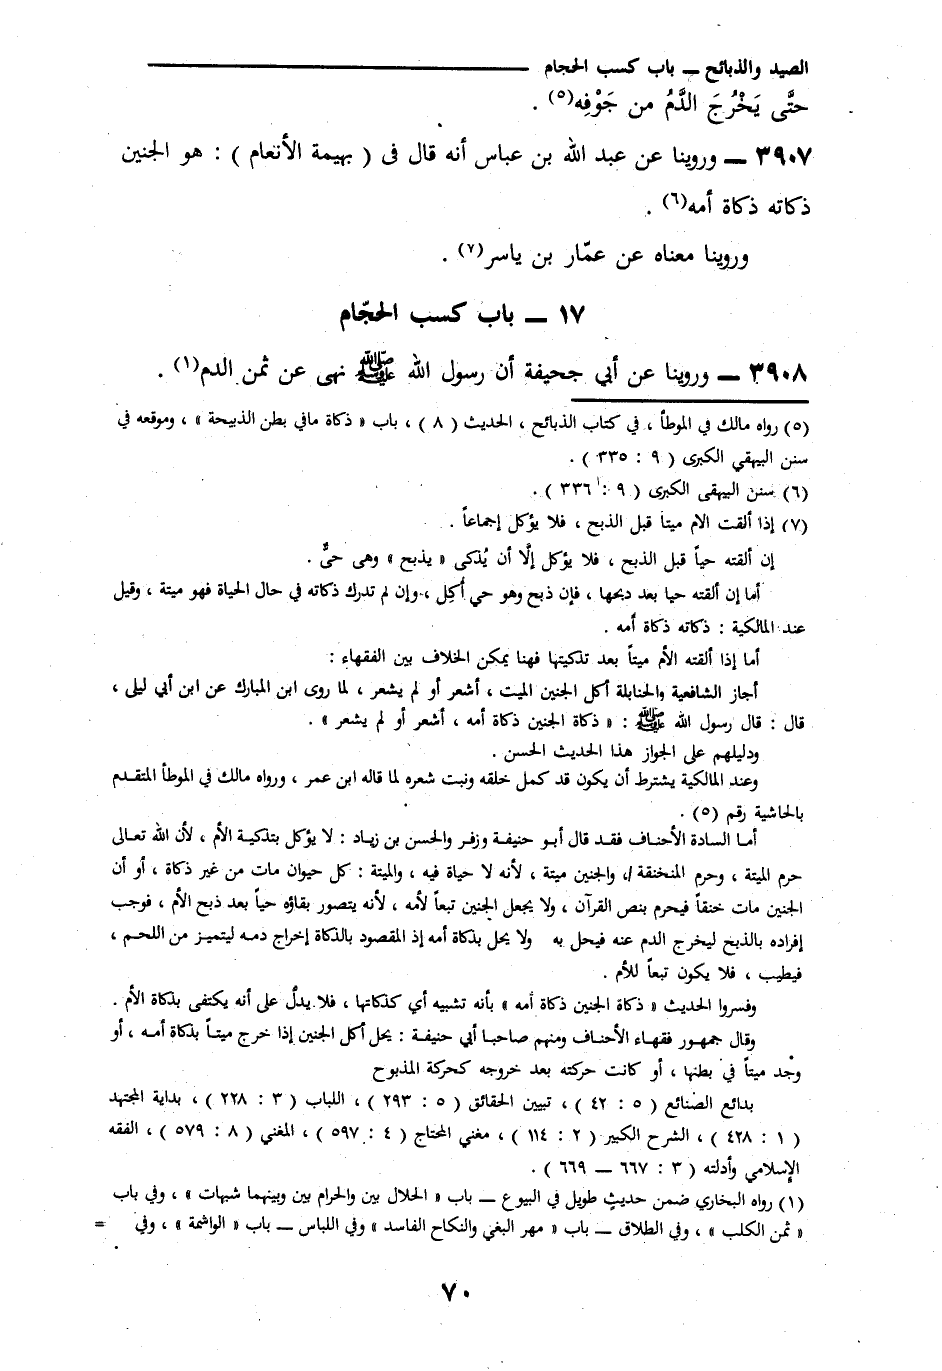 الصيد والذبائح ــ باب كسب الحجام
حتَّى يَخْرُجَ الدَّمُ من جَوْفِه(٥) .
٣٩٠٧ ــ وروينا عن عبد الله بن عباس أنه قال فى ( بهيمة الأنعام ) : هو الجنين
ذكاته ذكاة أمه(٦) .
وروينا معناه عن عمّار بن ياسر(٧) .
١٧ ــ باب كسب الحجّام
٣٩٠٨ ــ وروينا عن أبي جحيفة أن رسول الله ﷺ نهى عن ثمن الدم(١) .
(٥) رواه مالك في الموطأ ، في كتاب الذبائح ، الحديث ( ٨ ) ، باب « ذكاة مافي بطن الذبيحة » ، وموقعه في
سنن البيهقي الكبرى ( ٩ : ٣٣٥ ) .
(٦) سنن البيهقى الكبرى ( ٩ : ٣٣٦ ) .
(٧) إذا ألقت الام ميتا قبل الذبح ، فلا يؤكل إجماعاً .
إن ألقته حياً قبل الذبح ، فلا يؤكل إلَّا أن يُذكى « يذبح » وهى حىٌّ .
أما إن ألقته حيا بعد دبحها ، فإن ذبح وهو حي أُكِل ، وإن لم تدرك ذكاته في حال الحياة فهو ميتة ، وقيل
عند المالكية : ذكاته ذكاة أمه .
أما إذا ألقته الأم ميتاً بعد تذكيتها فهنا يمكن الخلاف بين الفقهاء :
أجاز الشافعية والحنابلة أكل الجنين الميت ، أشعر أو لم يشعر ، لما روى ابن المبارك عن ابن أبي ليلى ،
قال : قال رسول الله ﷺ : « ذكاة الجنين ذكاة أمه ، أشعر أو لم يشعر » .
ودليلهم على الجواز هذا الحديث الحسن .
وعند المالكية يشترط أن يكون قد كمل خلقه ونبت شعره لما قاله ابن عمر ، ورواه مالك في الموطأ المتقدم
بالحاشية رقم (٥) .
أما السادة الأحناف فقد قال أبو حنيفة وزفر والحسن بن زياد : لا يؤكل بتذكية الأم ، لأن الله تعالى
حرم الميتة ، وحرم المنخنقة ، والجنين ميتة ، لأنه لا حياة فيه ، والميتة : كل حيوان مات من غير ذكاة ، أو أن
الجنين مات خنقاً فيحرم بنص القرآن ، ولا يجعل الجنين تبعاً لأمه ، لأنه يتصور بقاؤه حياً بعد ذبح الأم ، فوجب
إفراده بالذبح ليخرج الدم عنه فيحل به ولا يحل بذكاة أمه إذ المقصود بالذكاة إخراج دمه ليتميز من اللحم ،
فيطيب ، فلا يكون تبعاً للأم .
وفسروا الحديث « ذكاة الجنين ذكاة أمه » بأنه تشبيه أي كذكاتها ، فلا يدلّ على أنه يكتفى بذكاة الأم .
وقال جمهور فقهاء الأحناف ومنهم صاحبا أبي حنيفة : يحل أكل الجنين إذا خرج ميتاً بذكاة أمه ، أو
وجد ميتاً في بطنها ، أو كانت حركته بعد خروجه كحركة المذبوح
بدائع الصنائع ( ٥ : ٤٢ ) ، تبيين الحقائق ( ٥ : ٢٩٣ ) ، اللباب ( ٣ : ٢٢٨ ) ، بداية المجتهد
( ١ : ٤٢٨ ) ، الشرح الكبير ( ٢ : ١١٤ ) ، مغني المحتاج ( ٤ : ٥٩٧ ) ، المغني ( ٨ : ٥٧٩ ) ، الفقه
الإسلامي وأدلته ( ٣ : ٦٦٧ ــ ٦٦٩ ) .
(١) رواه البخاري ضمن حديثٍ طويل في البيوع ــ باب « الحلال بين والحرام بين وبينهما شبهات » ، وفي باب
« ثمن الكلب » ، وفي الطلاق ــ باب « مهر البغي والنكاح الفاسد » وفي اللباس ــ باب « الواشمة » ، وفي =
٧٠